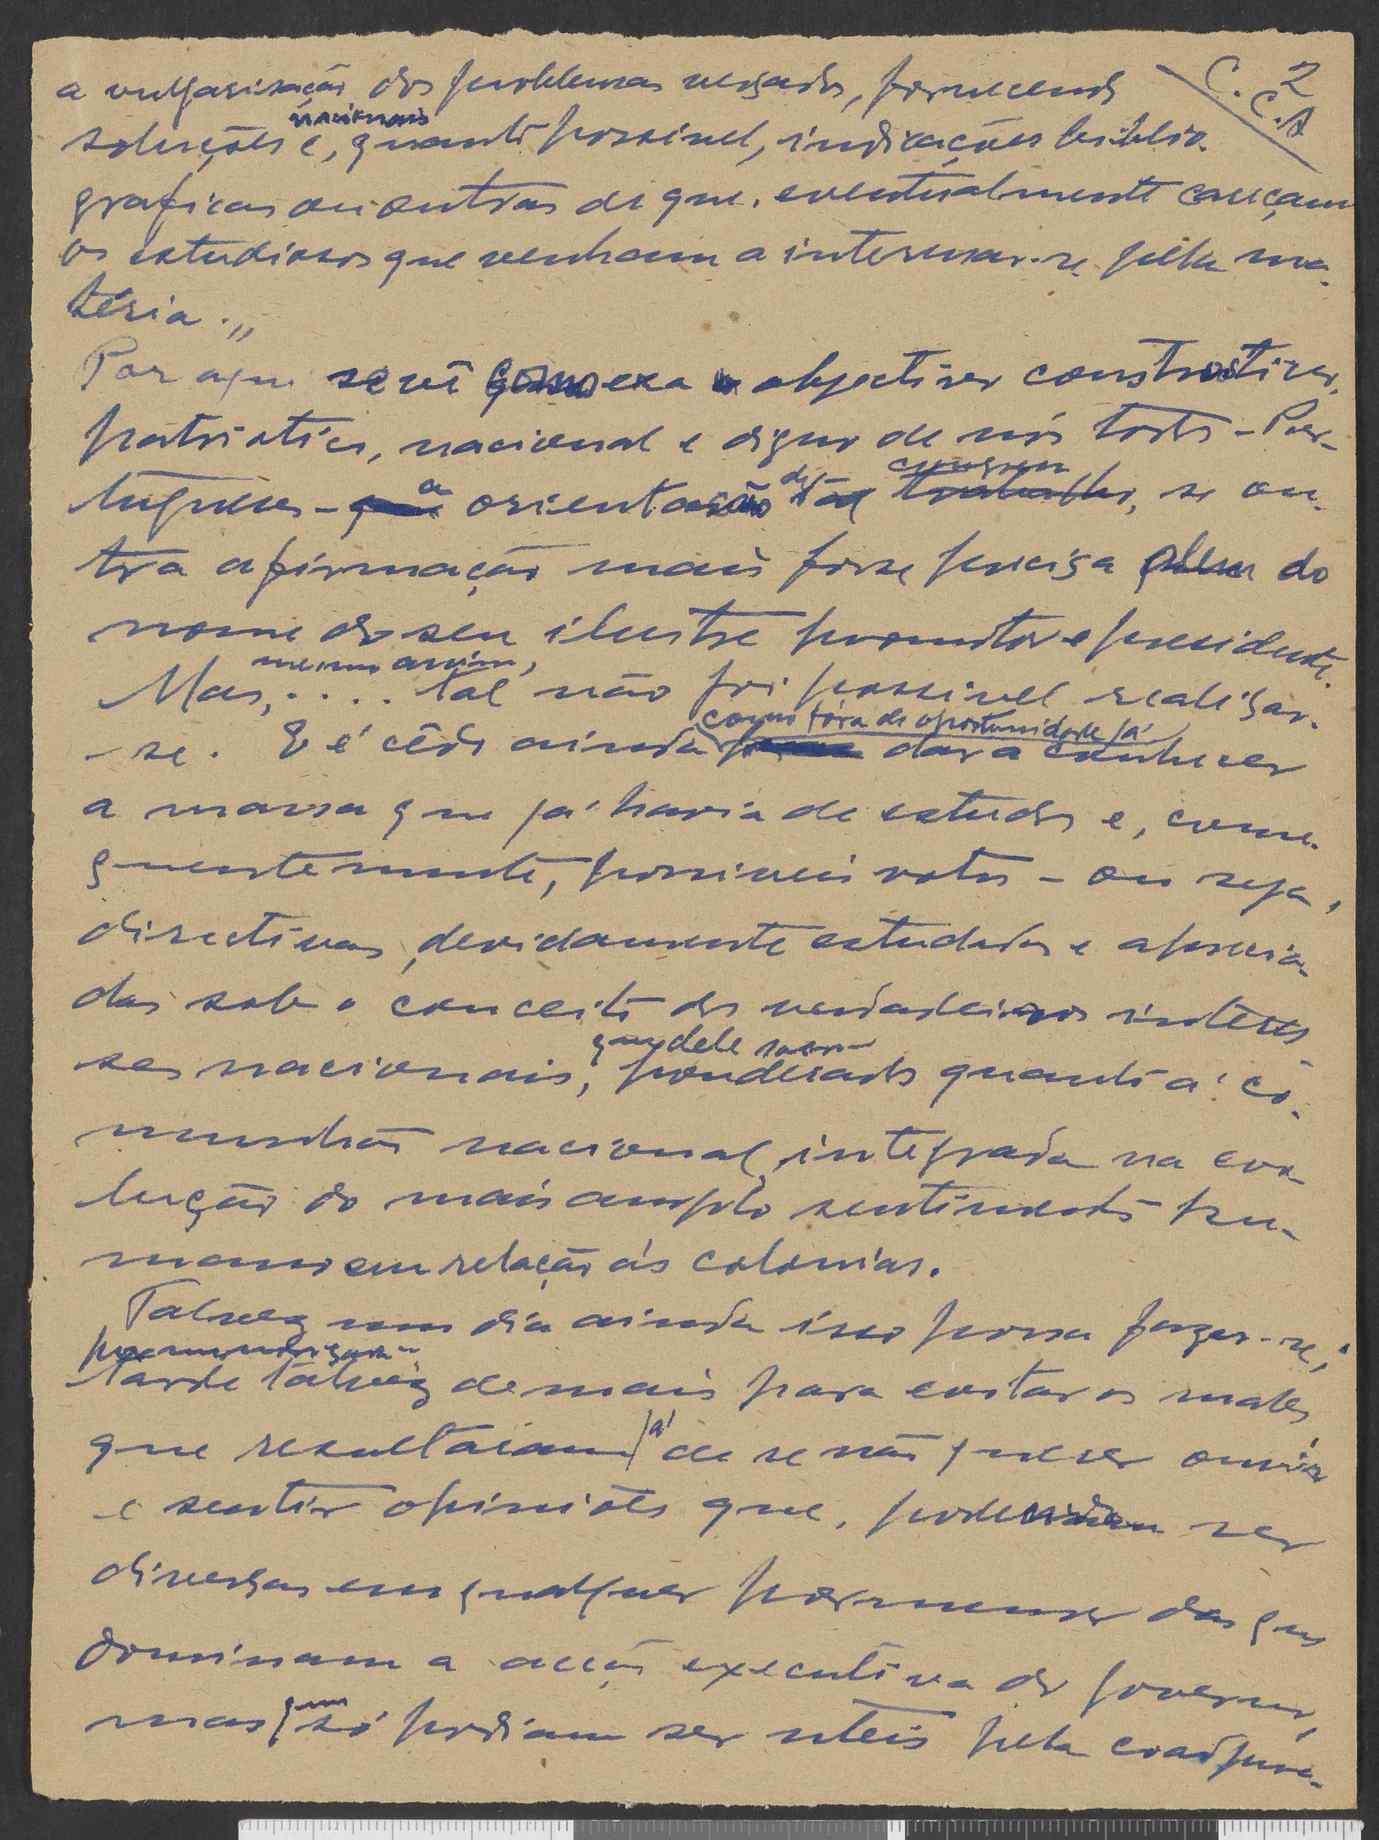 C. 2
C. A
a vulgarisação dos problemas versados, fornecendo
nacionais
soluções e, quanto possivel, indicações biblio-
graficas ou outras de que, eventualmente careçam
os estudiosos que venham a interessar-se pela ma-
téria.,,
Por aqui se vê como era o objectivo constructivo,
patriotico, nacional e digno de nós todos - Por-
tugueses - a orientação dêste
congresso
trabalho, se ou-
tra afirmação mais fosse precisa alem do
nome do seu ilustre promotor e presidente.
mesmo assim,
Mas, .... tal não foi possivel realizar-
como fóra de oportunidade já
-se. E é cêdo ainda para dar a conhecer
a massa que já havia de estudos e, conse-
quentemente, possiveis votos - ou seja,
directivas, devidamente estudadas e aprecia-
das sob o conceito dos verdadeiros interes-
ses nacionais, ponderados quanto á co-
que dele
munhão nacional, integrada na evo-
lução do mais amplo sentimento hu-
mano em relação ás colonias.
Talvez um dia ainda isso possa fazer-se;
tarde talvez de mais para evitar os males
que resultaram já de se não querer ouvir
e sentir opiniões que, poderiam ser
diversas em qualquer pormenor das que
dominam a acção executiva do governo,
mas que só podiam ser uteis pela coadjuva-